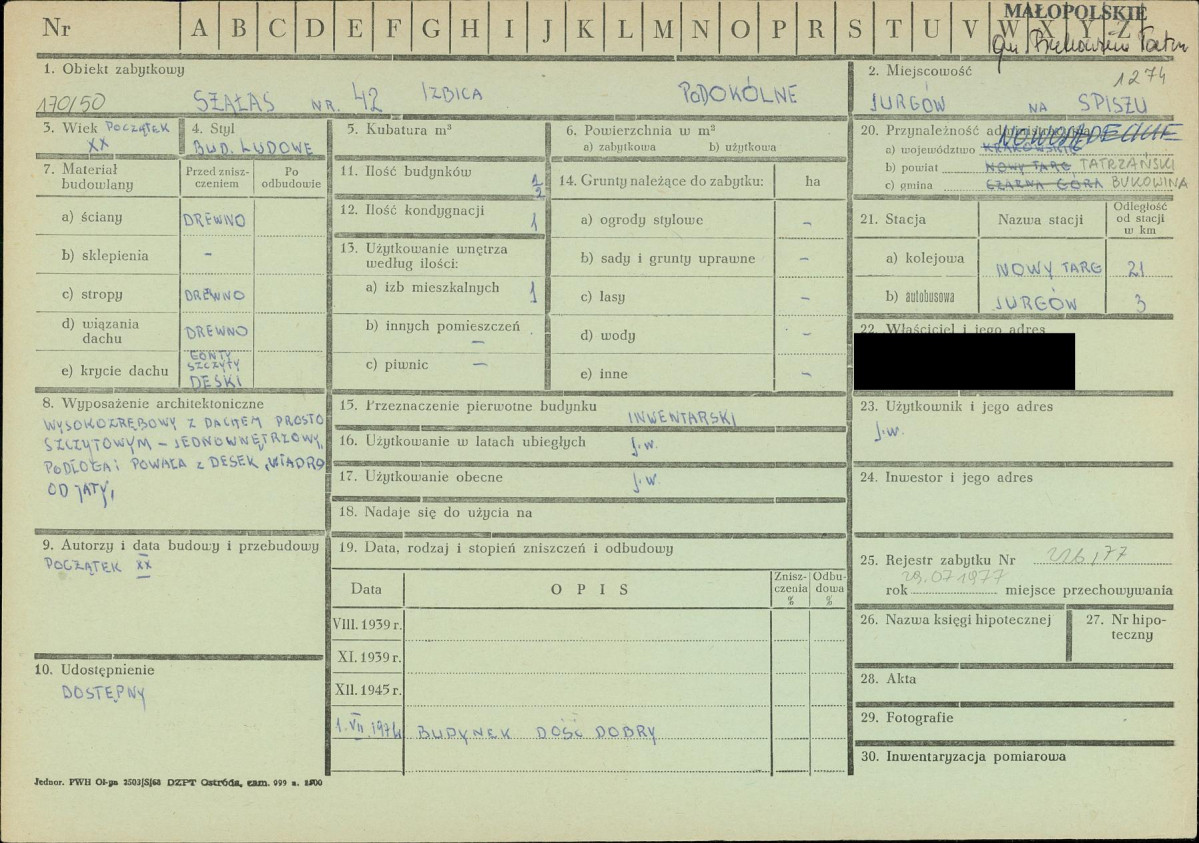 Nr A B C D E F G H I J K L M N O P R S T U V W X Y Z
MAŁOPOLSKIE
1. Obiekt zabytkowy
170/50 SZAŁAS NR. 42 IZBICA PODOKÓLNE
2. Miejscowość 1274
JURGÓW NA SPISZU
3. Wiek POCZĄTEK XX
4. Styl
BUD. LUDOWE
5. Kubatura m³
6. Powierzchnia w m²
a) zabytkowa b) użytkowa
7. Materiał budowlany
Przed zniszczeniem
Po odbudowie
a) ściany DREWNO
b) sklepienia –
c) stropy DREWNO
d) wiązania dachu DREWNO
e) krycie dachu GONTY SZCZYTY DESKI
11. Ilość budynków 1/2
12. Ilość kondygnacji 1
13. Użytkowanie wnętrza według ilości:
a) izb mieszkalnych 1
b) innych pomieszczeń –
c) piwnic –
14. Grunty należące do zabytku: ha
a) ogrody stylowe –
b) sady i grunty uprawne –
c) lasy –
d) wody –
e) inne –
20. Przynależność administracyjna
a) województwo KRAKOWSKIE NOWOSĄDECKIE
b) powiat NOWY TARG TATRZAŃSKI
c) gmina CZARNA GÓRA BUKOWINA
21. Stacja Nazwa stacji Odległość od stacji w km
a) kolejowa NOWY TARG 21
b) autobusowa JURGÓW 3
22. Właściciel i jego adres
8. Wyposażenie architektoniczne
WYSOKOZRĘBOWY Z DACHEM PROSTO
SZCZYTOWYM – JEDNOWNĘTRZOWY,
PODŁOGA I POWAŁA Z DESEK, WIADRO
OD JATY,
15. Przeznaczenie pierwotne budynku INWENTARSKI
16. Użytkowanie w latach ubiegłych j.w.
17. Użytkowanie obecne j.w.
18. Nadaje się do użycia na
23. Użytkownik i jego adres
j.w.
24. Inwestor i jego adres
9. Autorzy i data budowy i przebudowy
POCZĄTEK XX
19. Data, rodzaj i stopień zniszczeń i odbudowy
Data OPIS Zniszczenia % Odbudowa %
VIII. 1939 r.
XI. 1939 r.
XII. 1945 r.
1.VII.1974 BUDYNEK DOŚĆ DOBRY
25. Rejestr zabytku Nr 226/77
rok 29.07.1977 miejsce przechowywania
26. Nazwa księgi hipotecznej
27. Nr hipoteczny
28. Akta
29. Fotografie
30. Inwentaryzacja pomiarowa
10. Udostępnienie
DOSTĘPNY
Jednor. PWH Ol-pn 2503/S/68 DZPT Ostróda, zam. 999 n.